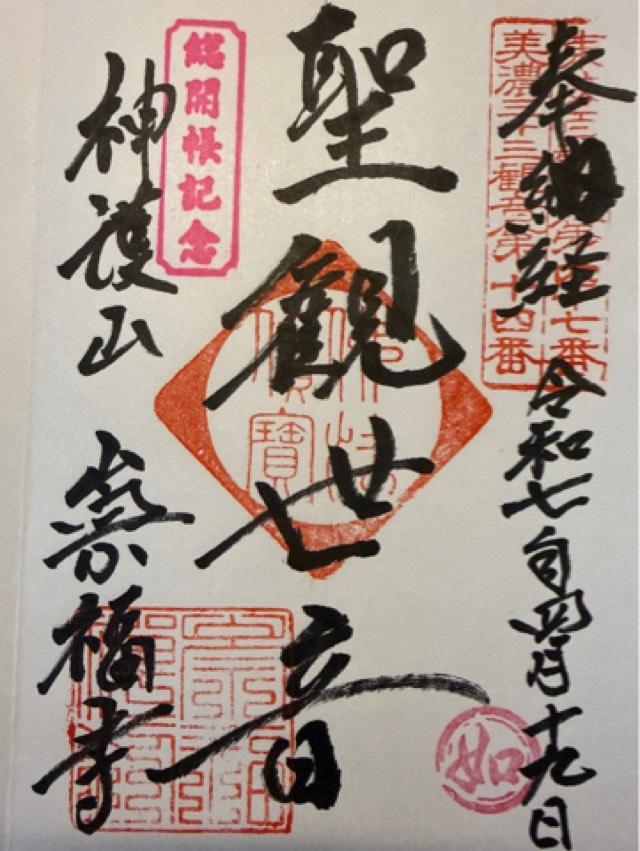 奉納経
令和七自四月十九日
美濃三十三観音第十四番
七番
如
聖観世音
佛法僧寶
総開帳記念
神護山
崇福寺